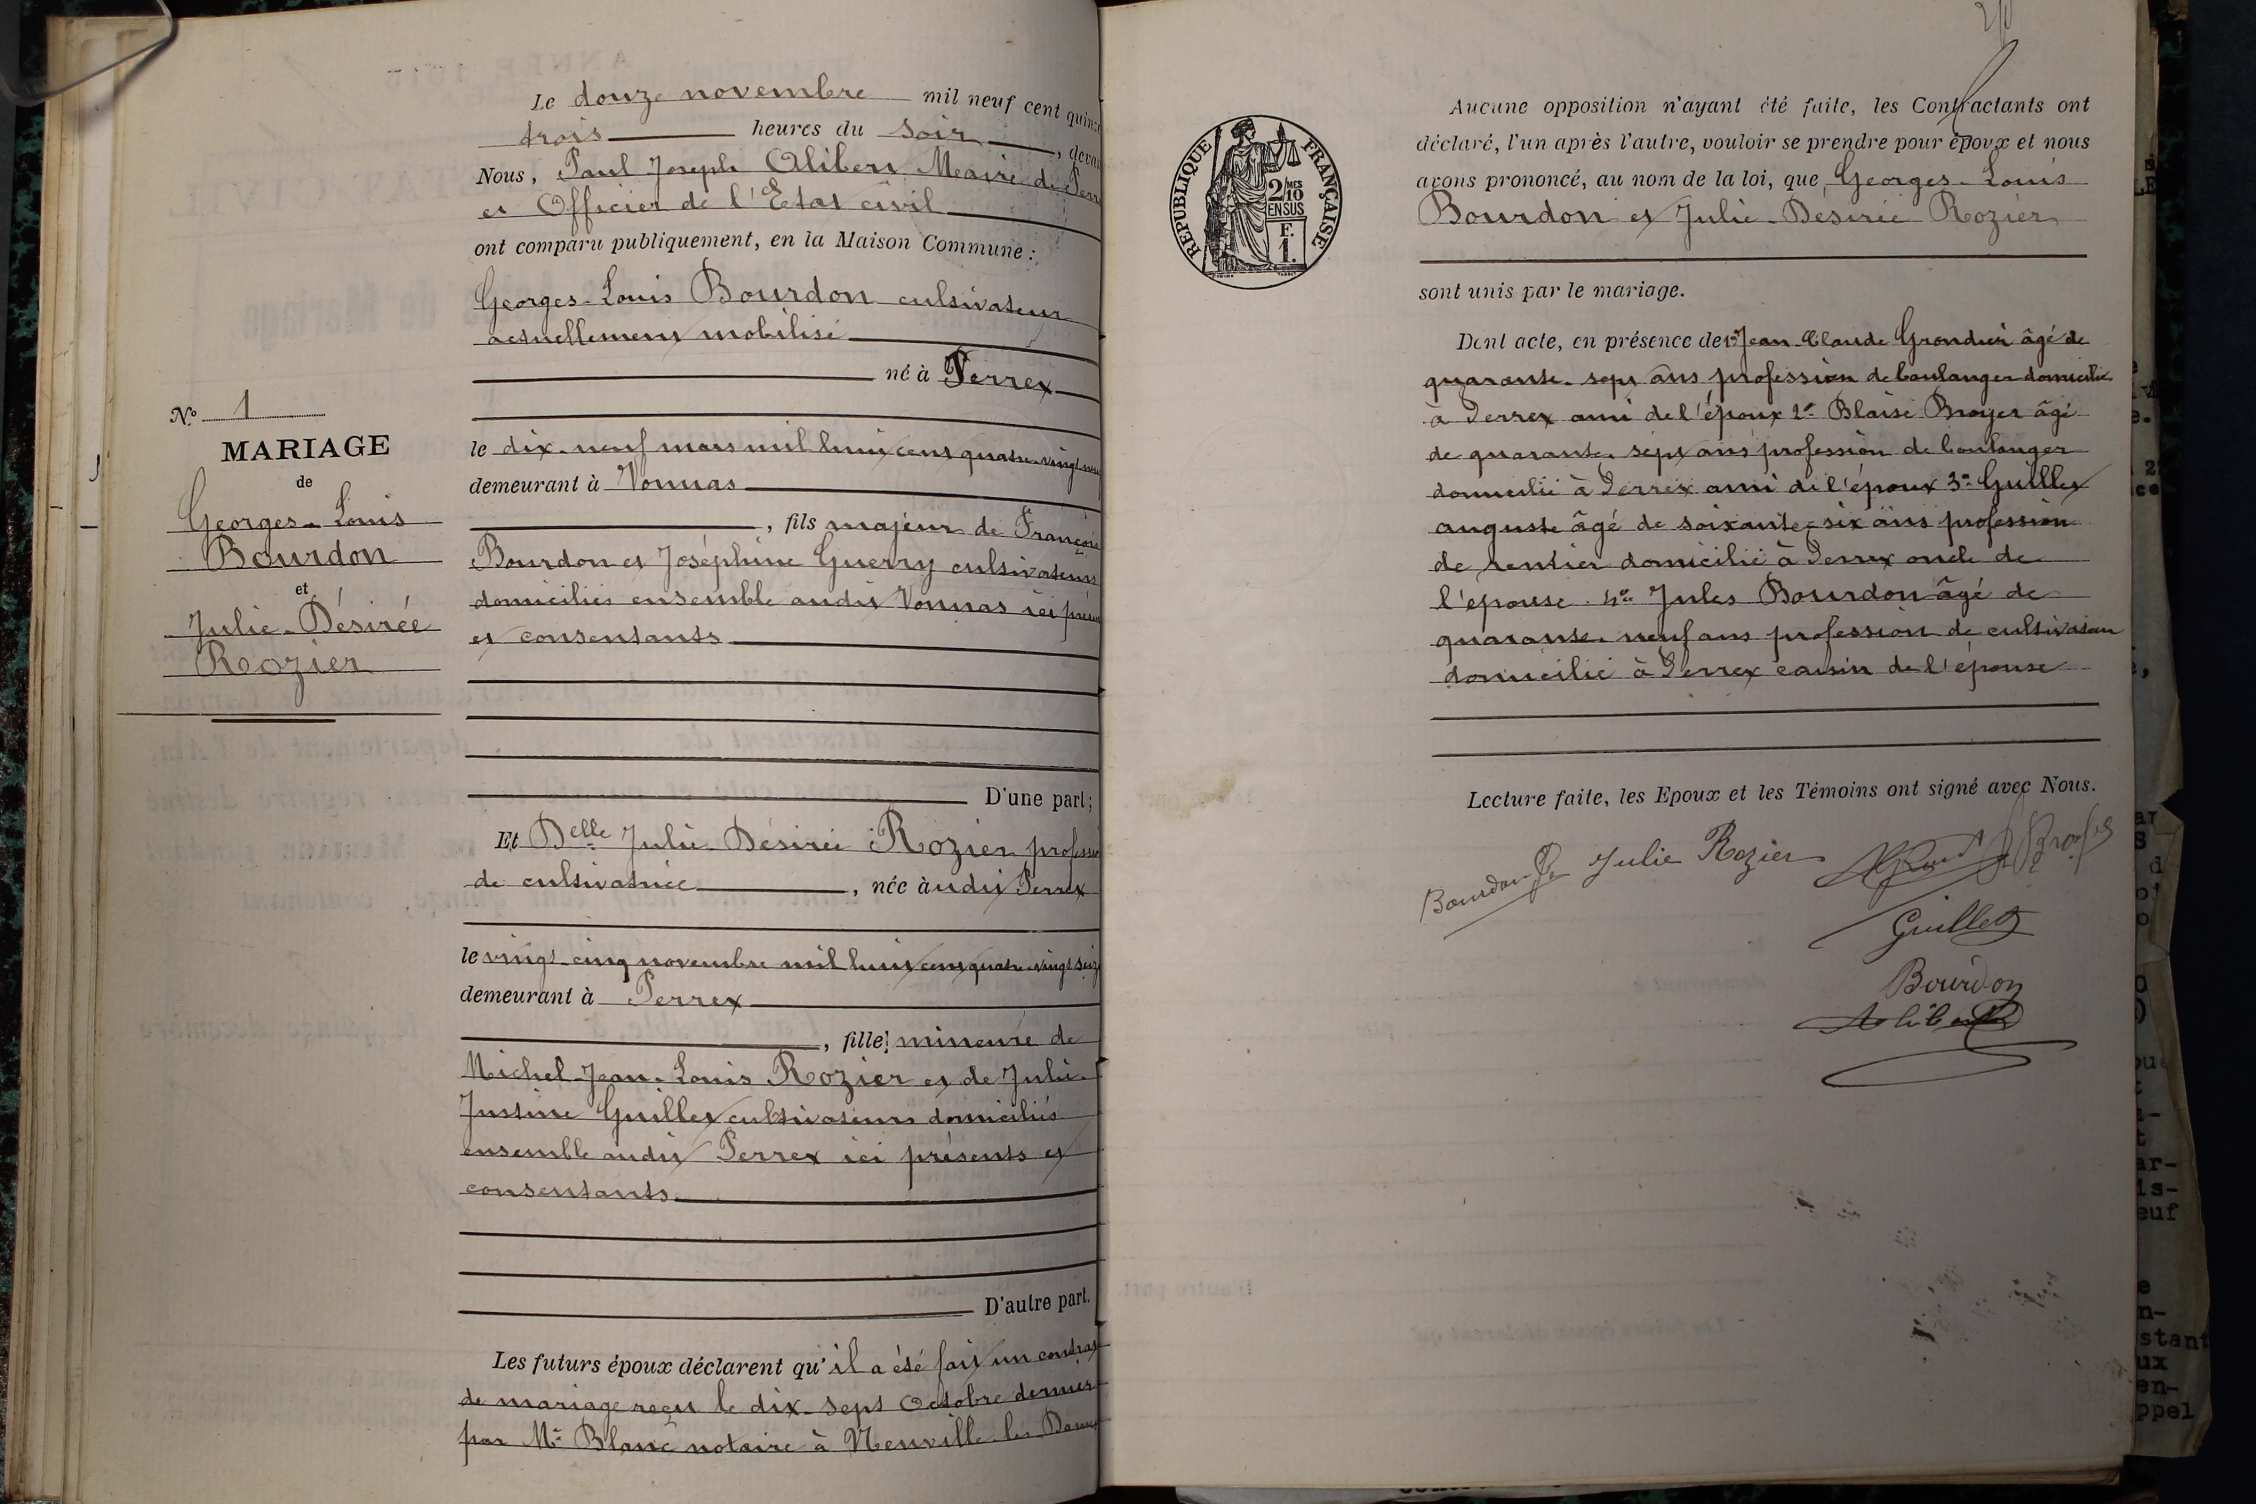 Le douze novembre mil neuf cent quinze
trois heures du soir, devant
Nous, Paul Joseph Aliben Maire de Perrex
et Officier de l'Etat civil
ont comparu publiquement, en la Maison Commune :
Georges-Louis Bourdon cultivateur
actuellement mobilisé
né à Perrex
le dix-neuf mars mil huit cent quatre-vingt
demeurant à Vonnas
, fils majeur de François
Bourdon et Joséphine Guerry cultivateurs
domiciliés ensemble audit Vonnas ici présents
et consentants
D'une part;
Et Delle Julie Désirée Rozier profession
de cultivatrice, née audit Perrex
le vingt-cinq novembre mil huit cent quatre-vingt seize
demeurant à Perrex
, fille mineure de
Michel-Jean-Louis Rozier et de Julie
Justine Guillet cultivateurs domiciliés
ensemble audit Perrex ici présents et
consentants
D'autre part.
Les futurs époux déclarent qu'il a été fait un contrat
de mariage reçu le dix-sept Octobre dernier
par Me Blanc notaire à Neuville les Dames
No 1
MARIAGE
de
Georges-Louis
Bourdon
et
Julie-Désirée
Rozier
RÉPUBLIQUE FRANÇAISE
2/10 MES
EN SUS
F.
1.
Aucune opposition n'ayant été faite, les Contractants ont
déclaré, l'un après l'autre, vouloir se prendre pour époux et nous
avons prononcé, au nom de la loi, que Georges-Louis
Bourdon et Julie-Désirée Rozier
sont unis par le mariage.
Dont acte, en présence de 1° Jean Claude Grondier âgé de
quarante-sept ans profession de boulanger domicilié
à Perrex ami de l'époux 2° Blaise Broyer âgé
de quarante-sept ans profession de boulanger
domicilié à Perrex ami de l'époux 3° Guillet
auguste âgé de soixante-six ans profession
de rentier domicilié à Perrex oncle de
l'epouse. 4° Jules Bourdon âgé de
quarante-neuf ans profession de cultivateur
domicilié à Perrex cousin de l'épouse
Lecture faite, les Epoux et les Témoins ont signé avec Nous.
Bourdon Julie Rozier
Guillet
Bourdon
Aliben